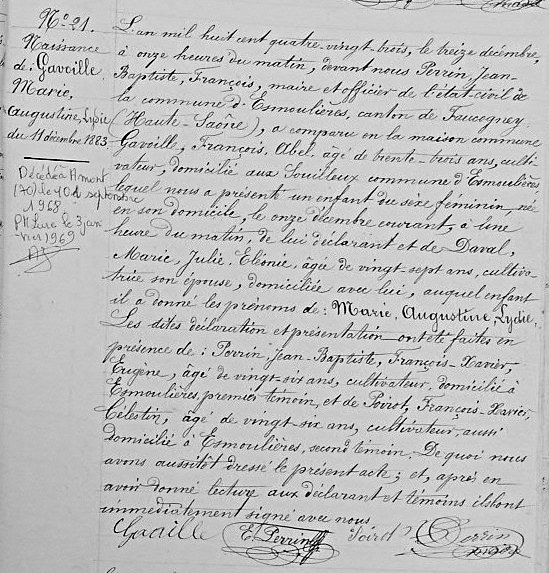 N° 21.
Naissance
de: Gavoille
Marie,
Augustine, Lydie
du 11 décembre 1883
Décédée à Amont
(70) le
septembre
1968
PH Lure le 3 jan
vier 1969
L'an mil huit cent quatre-vingt-trois, le treize décembre,
à onze heures du matin, devant nous Perrin, Jean-
Baptiste, François, maire et officier de l'état civil de
la commune d'Esmoulières, canton de Faucogney
(Haute-Saône), a comparu en la maison commune
Gavoille, François, Abel, âgé de trente-trois ans, culti-
vateur, domicilié aux Fouilleux commune d'Esmoulières
lequel nous a présenté un enfant du sexe féminin, née
en son domicile, le onze décembre courant, à une
heure du matin, de lui déclarant et de Daval,
Marie, Julie, Eléonie, âgée de vingt sept ans, cultiva-
trice son épouse, domiciliée avec lui, auquel enfant
il a donné les prénoms de: Marie, Augustine, Lydie.
Les dites déclaration et présentation ont été faites en
présence de: Perrin, Jean-Baptiste, François-Xavier,
Eugène, âgé de vingt-six ans, cultivateur, domicilié à
Esmoulières, premier témoin, et de Poirot, François-Xavier,
Célestin, âgé de vingt-six ans, cultivateur, aussi
domicilié à Esmoulières, second témoin. De quoi nous
avons aussitôt dressé le présent acte; et, après en
avoir donné lecture aux déclarant et témoins ils ont
immédiatement signé avec nous.
Gavoille E. Perrin Poirot Perrin